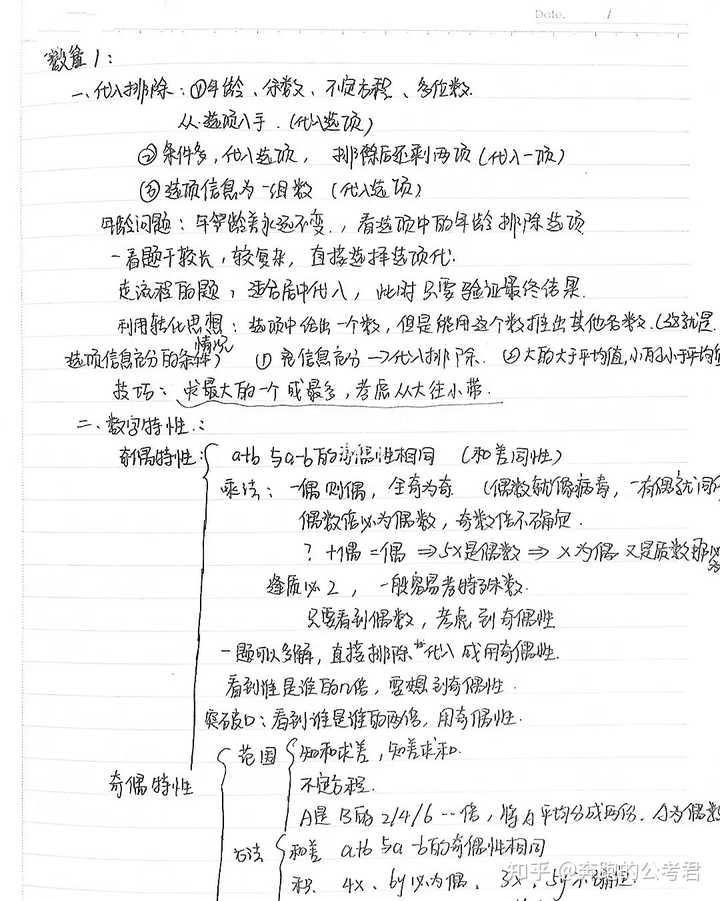 Date. /
数量1：
一、代入排除：①年龄、余数、不定方程、多位数.
从选项入手.（代入选项）
②条件多，代入选项，排除后还剩两项（代入一项）
③选项信息为一组数（代入选项）
年龄问题：年龄差永远不变.，看选项中的年龄排除选项
一看题干较长，较复杂，直接选择选项代.
走流程的题，适合居中代入，此时只需验证最终结果.
利用转化思想：选项中给出一个数，但是能用这个数推出其他各数.（这就是
选项信息充分的条件情况） ①信息充分→代入排除. ②大的大于平均值，小的小于平均
技巧：求最大的一个或最多，考虑从大往小带.
二、数字特性.：
奇偶特性： a+b与a-b的奇偶性相同 （和差同性）
乘法：一偶则偶，全奇为奇 （偶数就像病毒，一有偶就
偶数倍必为偶数，奇数倍不确定.
？+偶=偶 ⇒5x是偶数⇒ x为偶 又是质数
逢质必2，一般容易考特殊数.
只要看到偶数，考虑到奇偶性
一题可以多解，直接排除代入或用奇偶性.
看到谁是谁的n倍，要想到奇偶性.
突破口：看到谁是谁的两倍，用奇偶性.
奇偶特性 范围 知和求差，知差求和.
不定方程.
A是B的2/4/6…倍，将A平均分成两份.A为偶数
方法 和差 a+b与a-b的奇偶性相同
积. 4x、6y必为偶、3x、5y不确定.
知乎 @奔跑的公考君